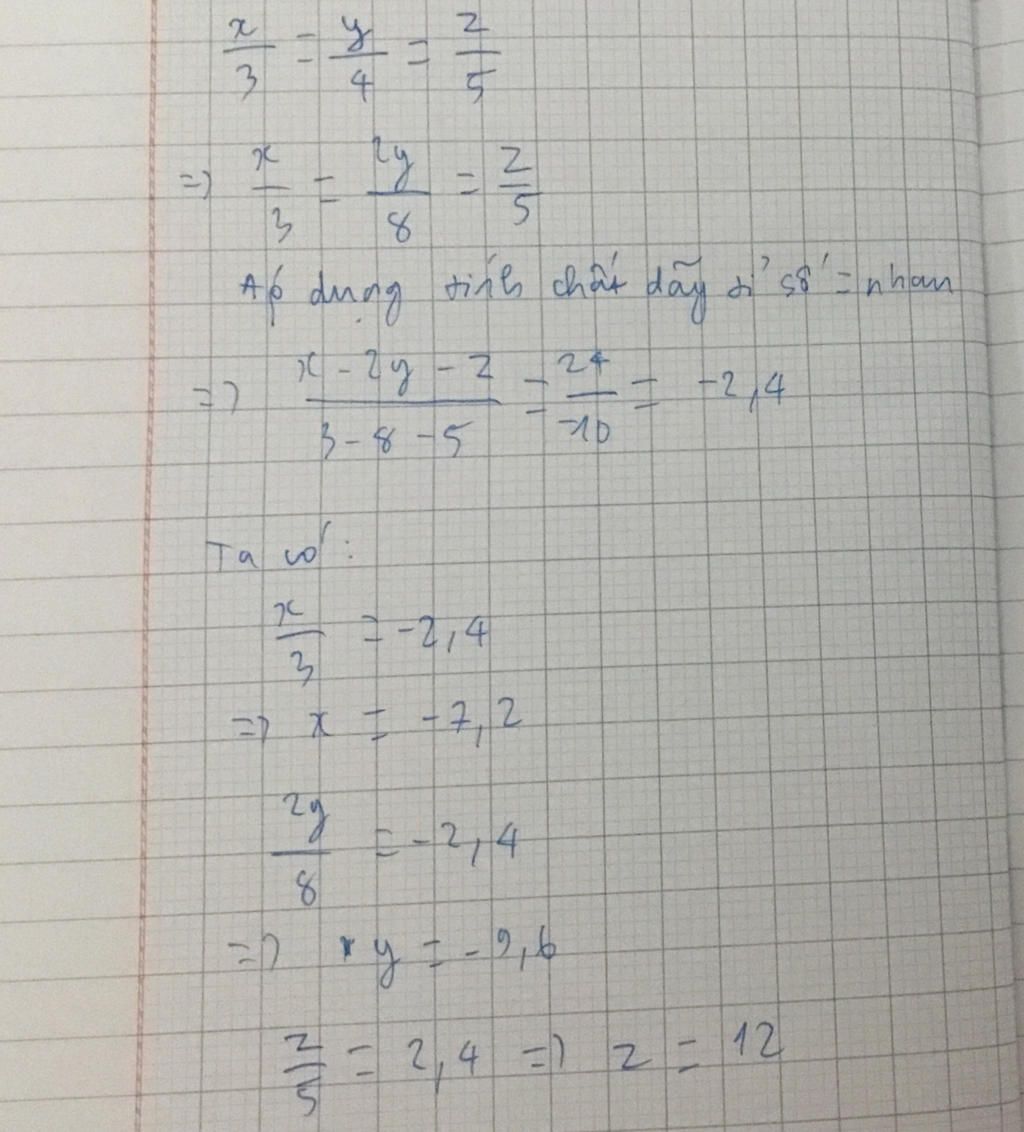 x/3 = y/4 = z/5
=> x/3 = 2y/8 = z/5
Áp dụng tính chất dãy tỉ số = nhau
=> x - 2y - z / 3 - 8 - 5 = 24/-10 = -2,4
Ta có:
x/3 = -2,4
=> x = -7,2
2y/8 = -2,4
=> y = -9,6
z/5 = 2,4 => z = 12